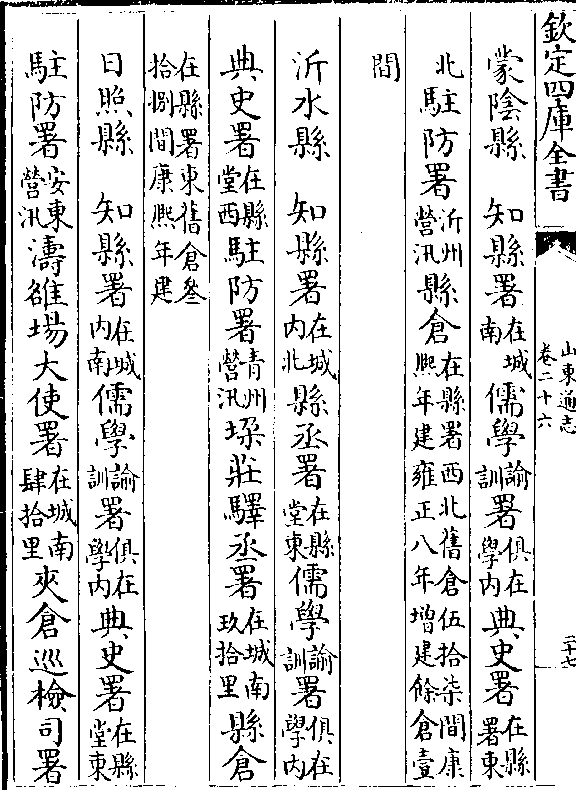 欽定四庫全書
山東通志
卷二十六
二十七
蒙陰縣　知縣署在城南儒學諭訓署俱在學內典史署在縣署東
北駐防署沂州營汛縣倉在縣署西北舊倉伍拾柒間康熙年建雍正八年增建餘倉壹
間
沂水縣　知縣署在城內北縣丞署在縣堂東儒學諭訓署俱在學內
典史署在縣堂西駐防署青州營汛垜莊驛丞署在城南玖拾里縣倉
在縣署東舊倉叄拾捌間康熙年建
日照縣　知縣署在城內南儒學諭訓署俱在學內典史署在縣堂東
駐防署安東營汛濤雒場大使署在城南肆拾里夾倉巡檢司署